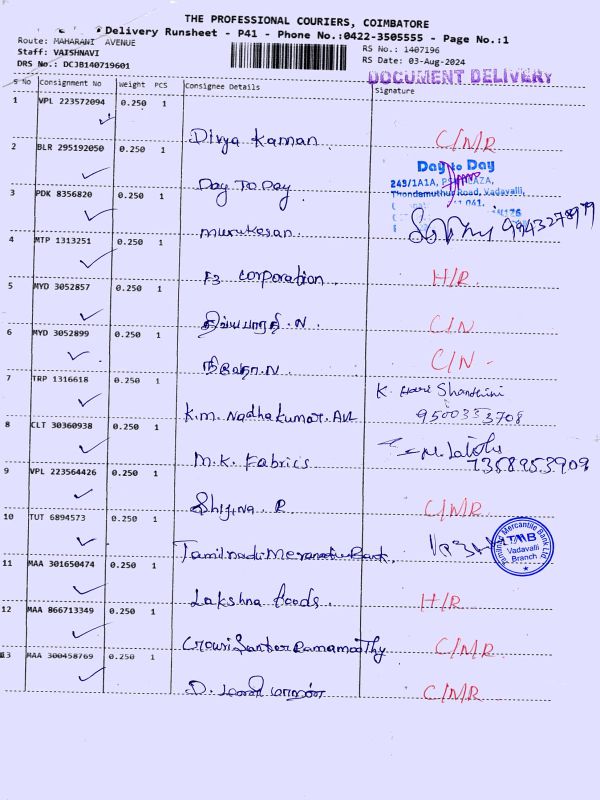 THE PROFESSIONAL COURIERS, COIMBATORE
Delivery Runsheet - P41 - Phone No.:0422-3505555 - Page No.:1
Route: MAHARANI AVENUE
RS No.: 1407196
Staff: VAISHNAVI
RS Date: 03-Aug-2024
DRS No.: DCJB140719601
DOCUMENT DELIVERY
S No Consignment No Weight PCS Consignee Details Signature
1 VPL 223572094 0.250 1
Divya Kannan C/N/R
2 BLR 295192050 0.250 1
Day To Day
Day to Day
249/1A1A, PLAZA,
Thondamuthur Road, Vadavalli,
3 PDK 8356820 0.250 1
Murukesan 9943278979
4 MTP 1313251 0.250 1
F3 Corporation H/R
5 MYD 3052857 0.250 1
திவ்யபாரதி.N C/N
6 MYD 3052899 0.250 1
நிவேதா.N C/N -
7 TRP 1316618 0.250 1
K.M. Nadhakumar. K. Hari Shanthini
9500353708
8 CLT 30360938 0.250 1
M.K. Fabrics 7358953909
9 VPL 223564426 0.250 1
Shijina. R C/N/R
10 TUT 6894573 0.250 1
Tamilnadu Bank.
Tamilnad Mercantile Bank Ltd
TMB
Vadavalli
Branch
11 MAA 301650474 0.250 1
Lakshna foods. H/R
12 MAA 866713349 0.250 1
Gowri Sanker Ramamoothy C/N/R
13 MAA 300458769 0.250 1
D. C/N/R